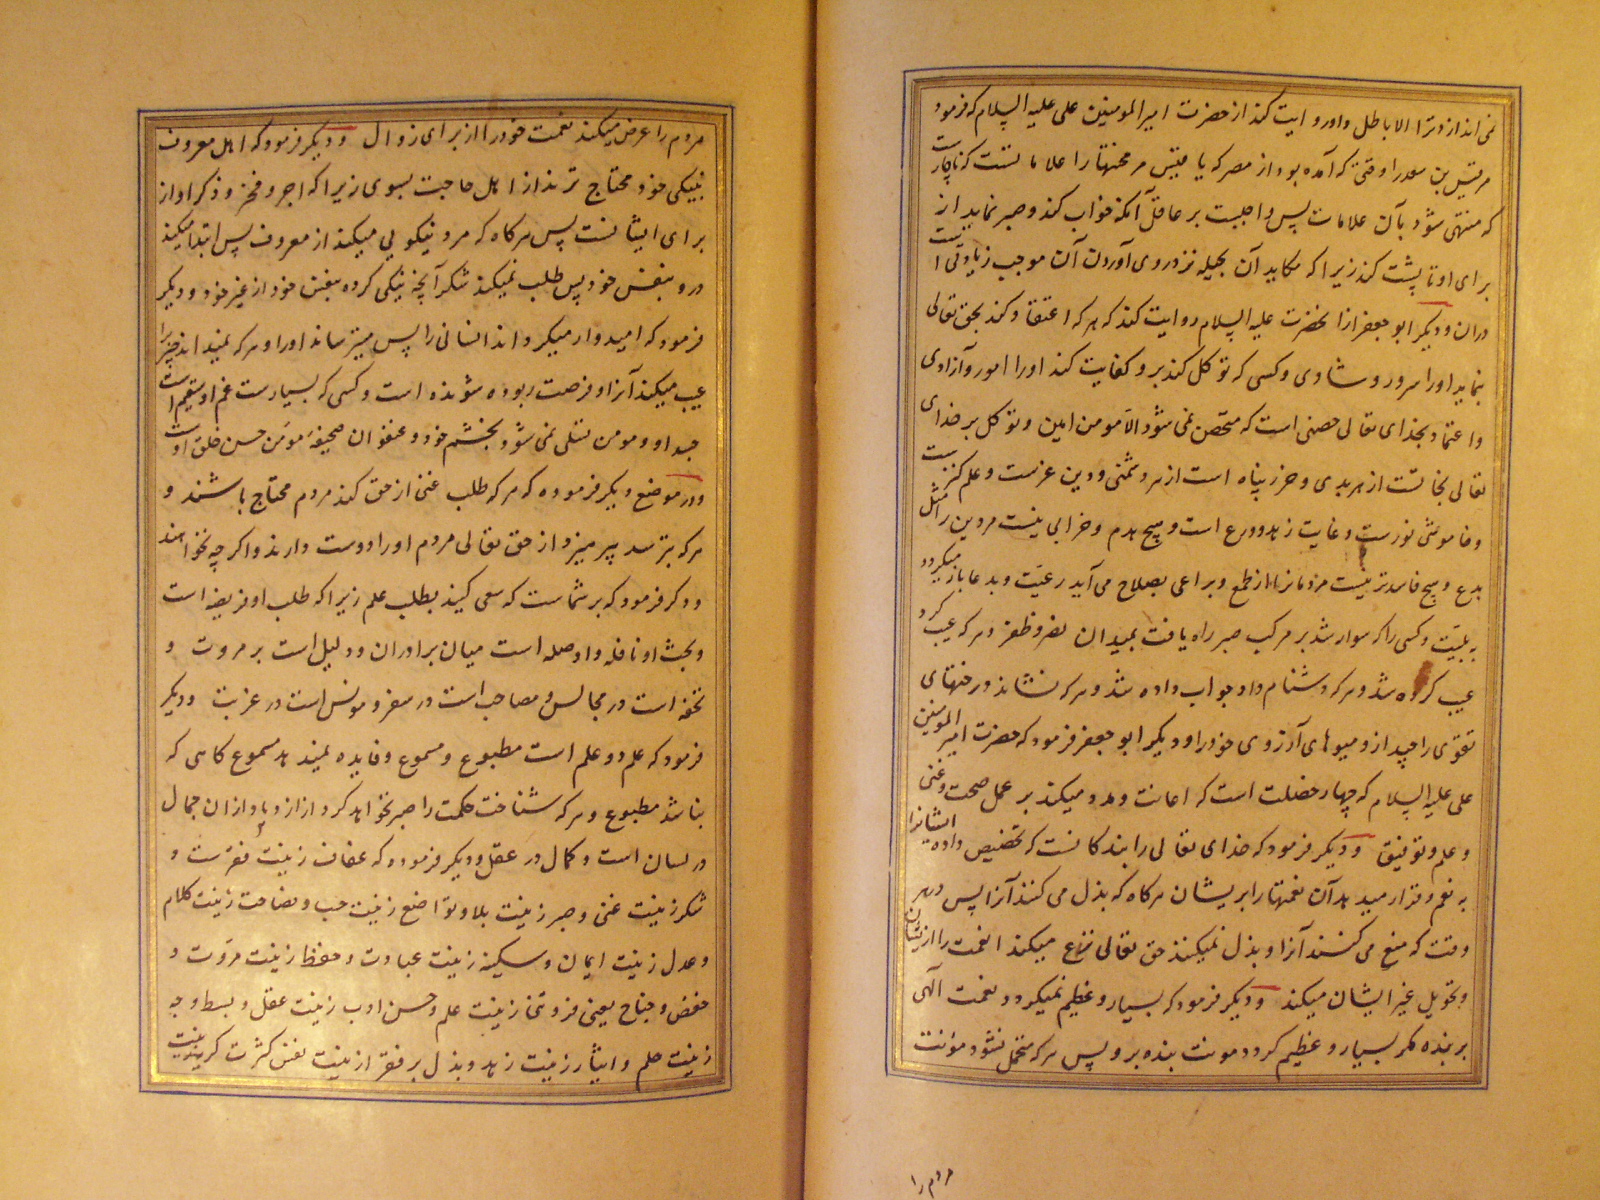 نمی اندازد ترا الا باطل و او روایت کند از حضرت امیر المومنین علی علیه السلام که فرمود
مر قیس بن سعد را وقتی که آمده بود از مصر که یا قیس مر محنتها را علاماتست که ناچارست
که منتهی شود بآن علامات پس واجبست بر عاقل آنکه خواب کند و صبر نماید از
برای او تا پشت کند زیرا که مکایید آن بحیله نزد روی آوردن آن موجب زیادتی است
دران و دیگر ابو جعفر از آنحضرت علیه السلام روایت کند که هر که اعتقاد کند بحق تعالی
بنماید او را سرور و شادی و کسی که توکل کند برو کفایت کند او را امور و آزادی
و اعتماد بخدای تعالی حصنی است که متحصن نمی شود الا مومن امین و توکل بر خدای
تعالی نجاتست از هر بدی و حرز پناه است از هر دشمنی و دین عزست و علم کنزیست
و خاموشی نورست و غایت زهد ورع است و هیچ هدم و خرابی نیست مر دین را مثل
بدع و هیچ فاسدتر نیست مردمانرا از طمع و براعی بصلاح می آید رعیت و بدعا باز میگردد
بلیت و کسی را که سوار شد بر مرکب صبر راه یافت بمیدان نصر و ظفر و هر که عیب کرد
عیب کرده شد و هر که دشنام داد جواب داده شد و هر که نشاند درختهای
تقوی را چید از و میوهای آرزوی خود را و دیگر ابو جعفر فرمود که حضرت امیر المومنین
علی علیه السلام که چهار خصلت است که اعانت و مدد میکند بر عمل صحت و غنی
و علم و توفیق و دیگر فرمود که خدای تعالی را بندکانست که تخصیص داده ایشانرا
به نعم و قرار میدهد آن نعمتها را بر ایشان هر کاه که بذل می کنند آنرا پس در هر
وقت که منع می کنند آنرا و بذل نمیکنند حق تعالی نزع میکند نعمت را از ایشان
و تحویل غیر ایشان میکند و دیگر فرمود که بسیار و عظیم نمیگردد نعمت الهی
بر بنده مگر بسیار و عظیم گردد مونت بنده برو پس هر که متحمل نشود مونت
مردم را
مردم را عرض میکند نعمت خود را از برای زوال و دیگر فرمود که اهل معروف
بنیکی خود محتاج ترند از اهل حاجت بسوی زیرا که اجر و فخر و ذکر او از
برای ایشانست پس هر کاه که مرد نیکویی میکند از معروف پس ابتدا میکند
درو بنفس خود پس طلب نمیکند شکر آنچه نیکی کرده بنفس خود از غیر خود و دیگر
فرمود که امیدوار میگرداند انسانی را پس میترساند او را و هر که نمیداند چیزیرا
عیب میکند آنرا و فرصت ربوده شونده است و کسی که بسیارست غم او سقیم است
جسد او و مومن تسلی نمی شود بخشم خود و عنوان صحیفه مومن حسن خلق اوست
و در موضع دیگر فرموده که هر که طلب غنی از حق کند مردم محتاج باشند و
هر که بترسد پرهیزد از حق تعالی مردم او را دوست دارند و اگر چه نخواهند
و دکر فرمود که بر شماست که سعی کنید بطلب علم زیرا که طلب او فریضه است
و بحث او نافله و او صله است میان برادران و دلیل است بر مروت و
تحفه است در مجالس و مصاحب است در سفر و مونس است در غربت و دیگر
فرمود که علم دو علم است مطبوع و مسموع و فایده نمیدهد مسموع کاهی که
نباشد مطبوع و هر که شناخت حکمت را صبر نخواهد کرد از ازدیاد ازان جمال
در لسان است و کمال در عقل و دیگر فرمود که عفاف زینت فقرست و
شکر زینت غنی و صبر زینت بلا و تواضع زینت حسب و فصاحت زینت کلام
و عدل زینت ایمان و سکینه زینت عبادت و حفظ زینت مروت و
خفض و جناح یعنی فروتنی زینت علم و حسن ادب زینت عقل و بسط وجه
زینت حلم و ایثار زینت زهد و بذل بر فقر از زینت نفس کثرت کریه زینت